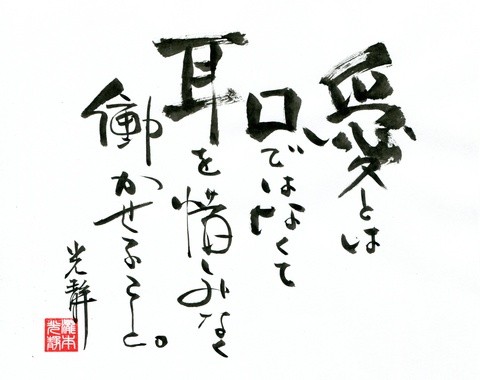 愛とは
口ではなくて
耳を惜しみなく
働かせること。
光静